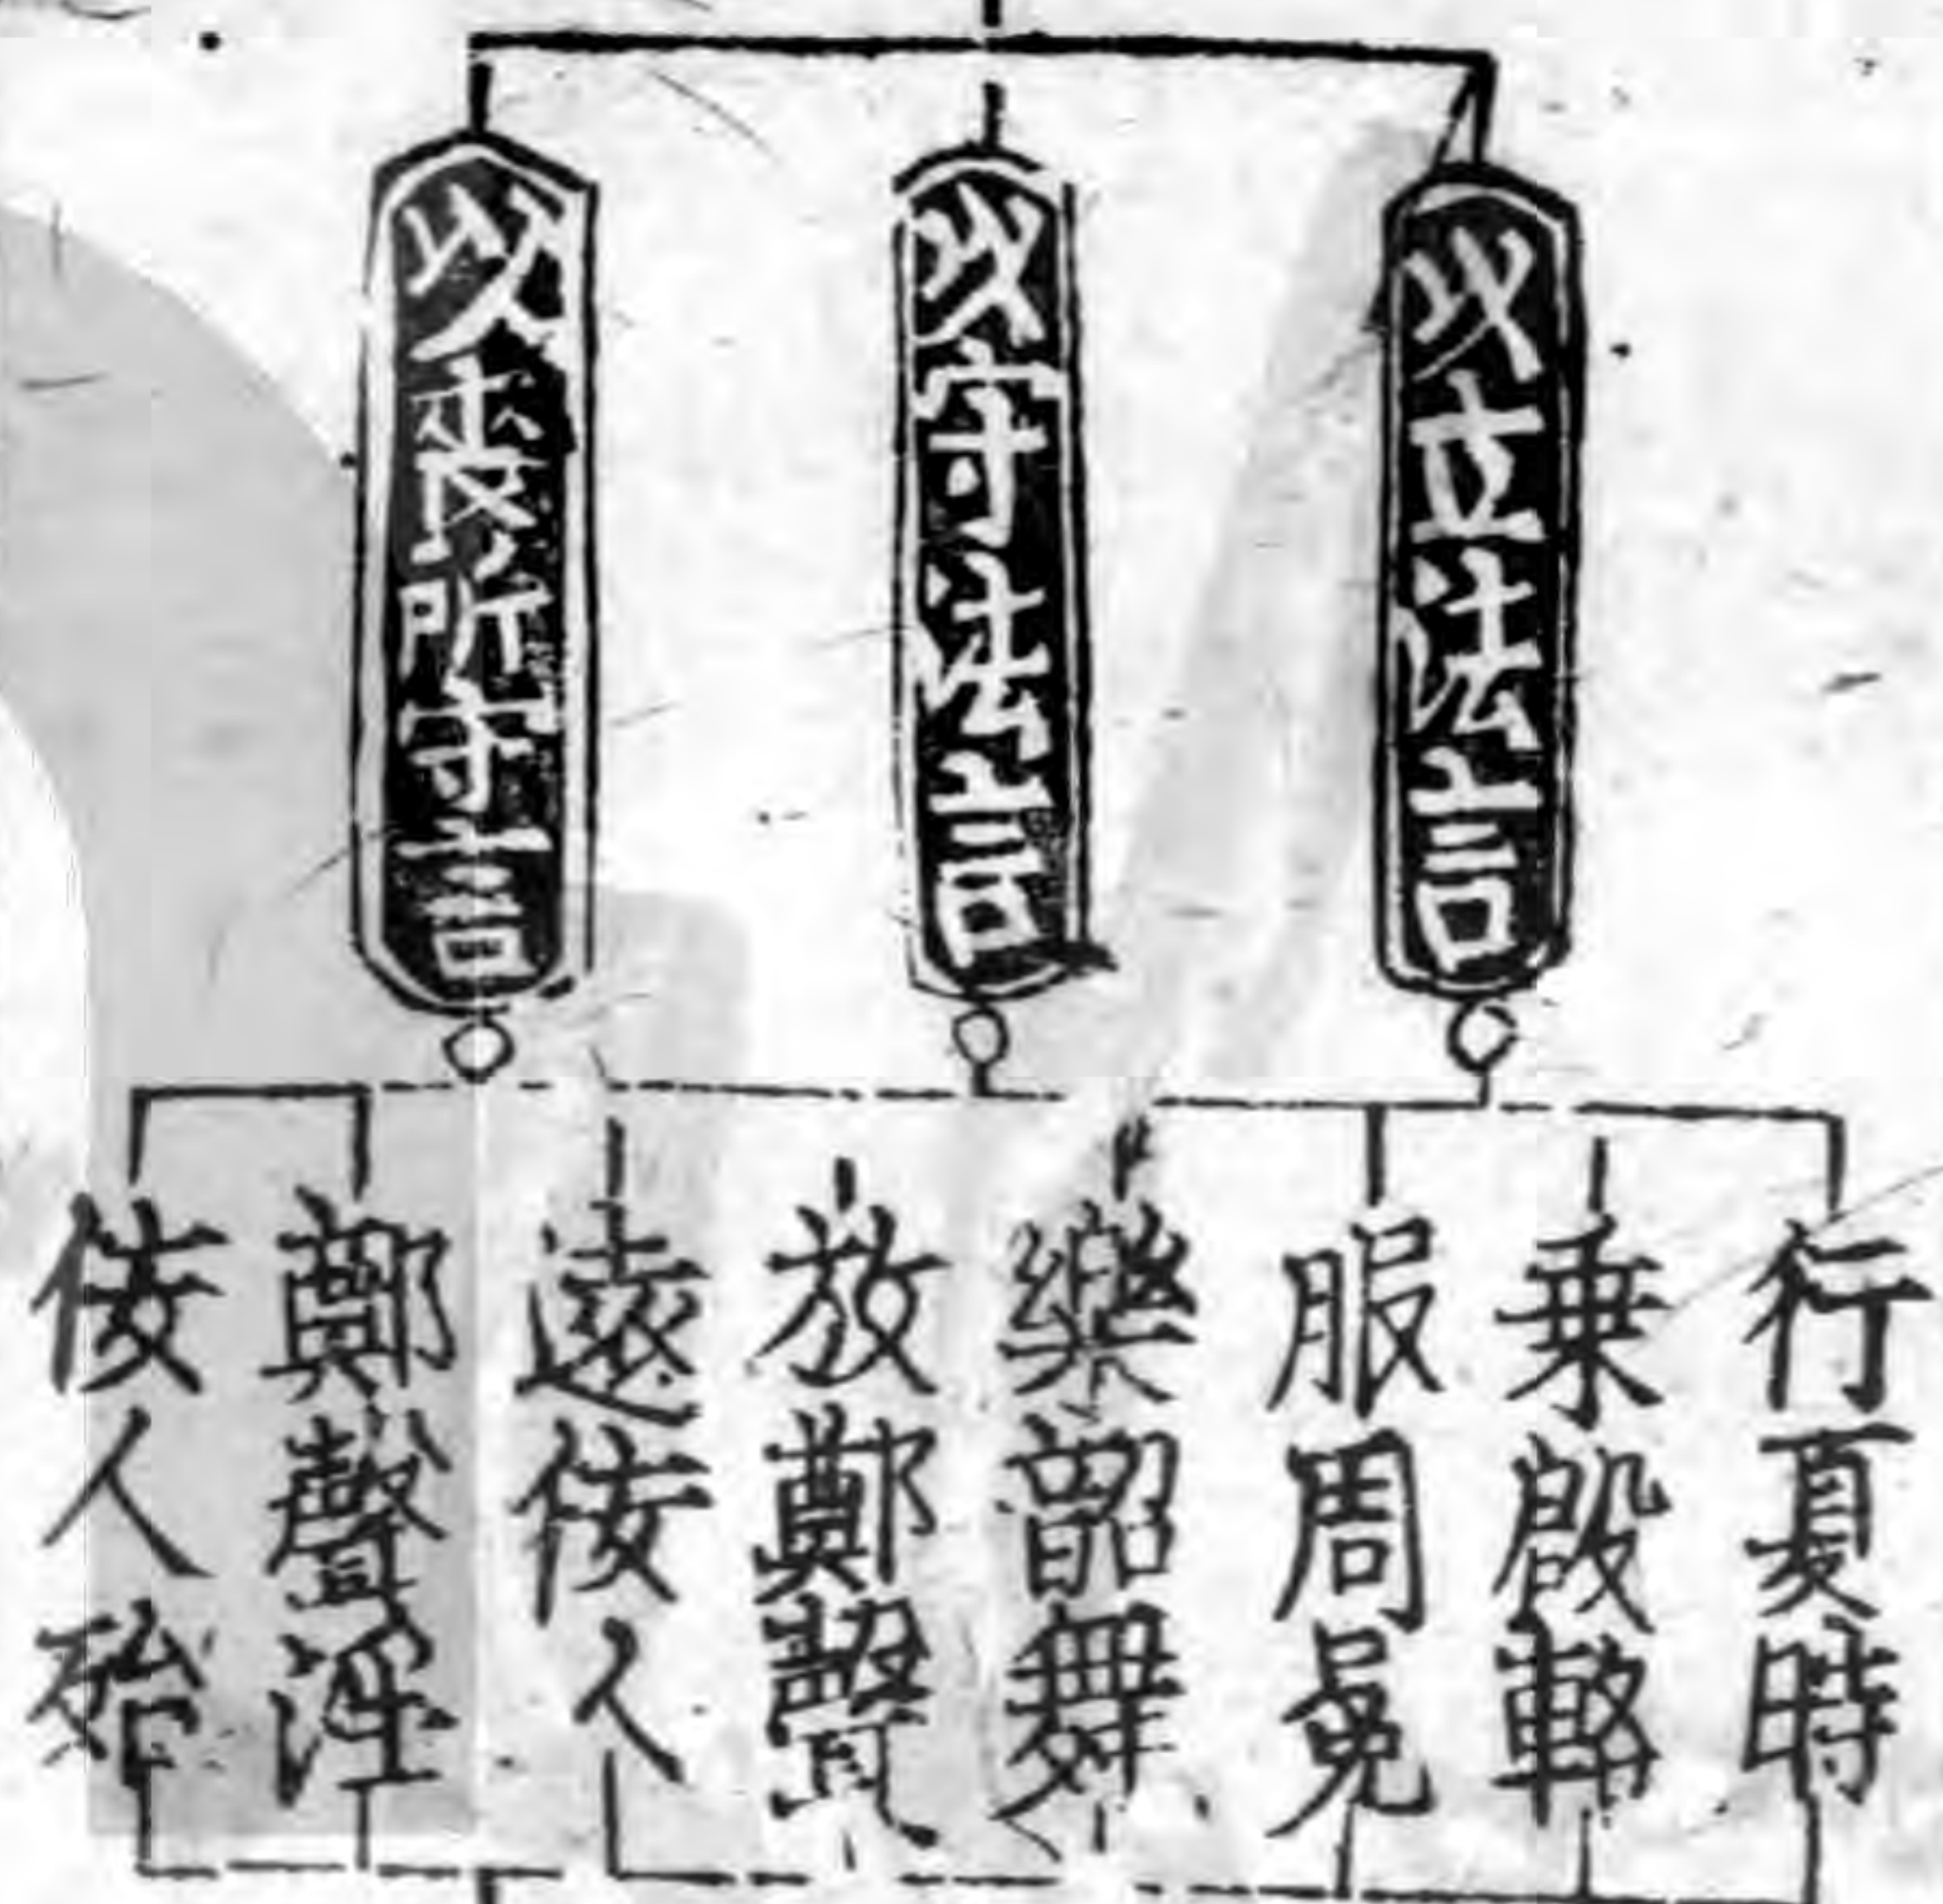 以立法言
以守法言
以喪所守言
行夏時
乗殷輅
服周冕
樂韶舞
放鄭聲
遠佞人
鄭聲淫
佞人殆